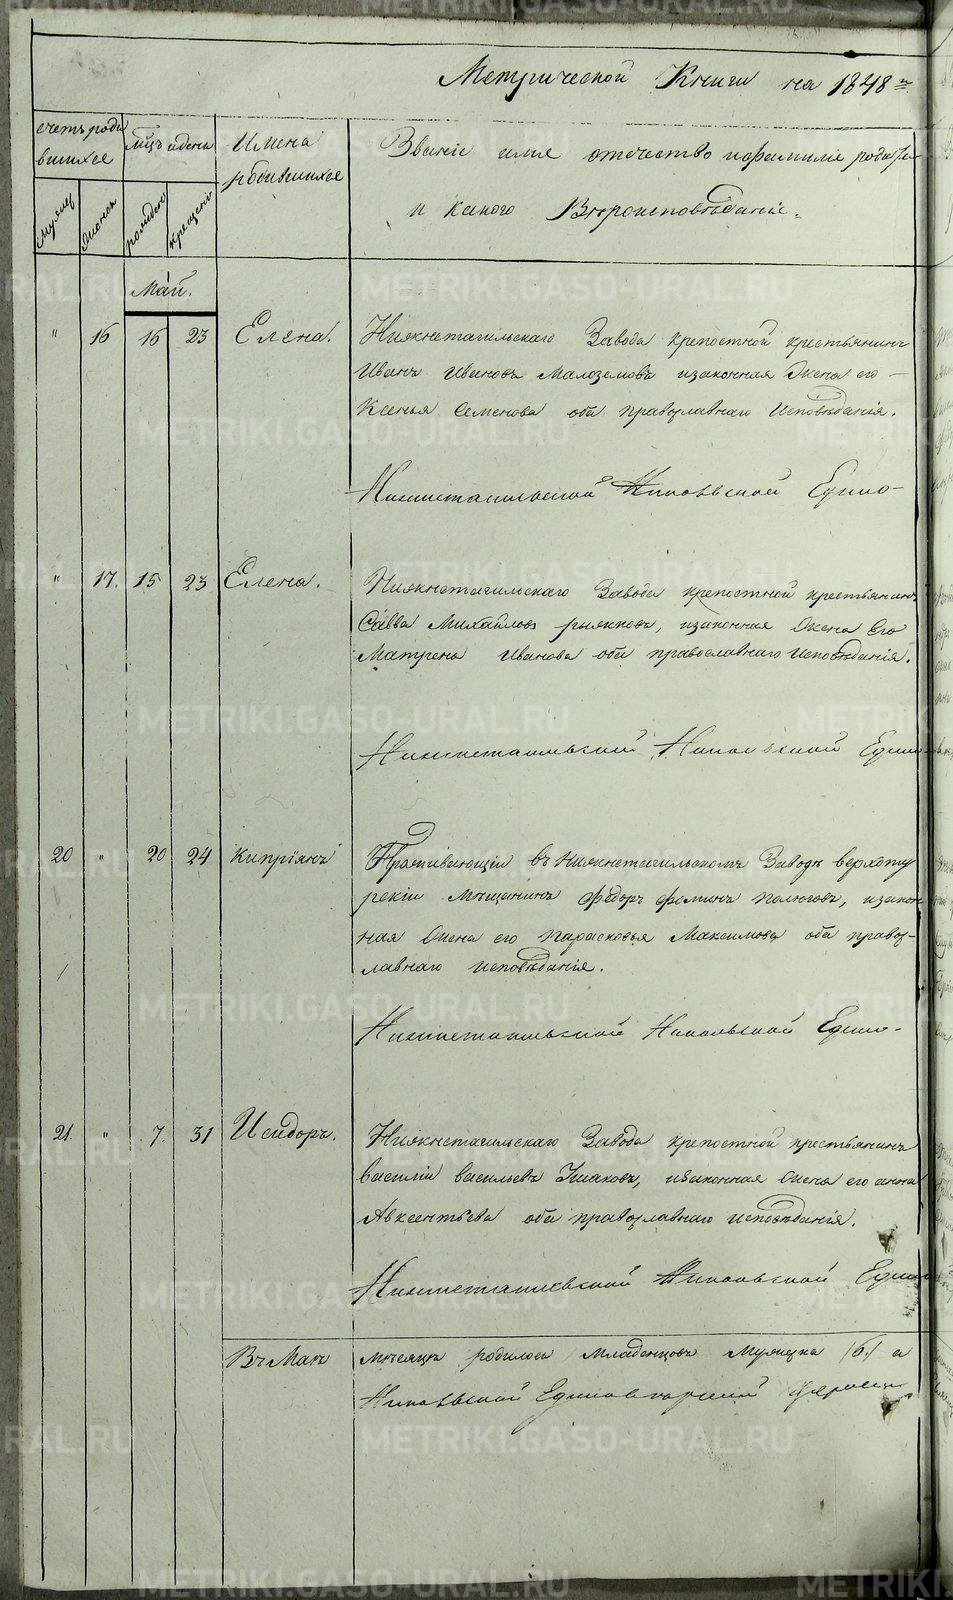 Метрической Книги на 1848 г
счетъ роди
вшихся
мѣцъ и день
Имена
родившихся
Званіе имя отчество и фамилія роди
и какого Вѣроисповѣданія.
мужес
женск
рожден
крещені
Май.
" 16 16 23 Елена. Нижнетагильскаго Завода крепостной крестьянинъ
Иванъ Ивановъ Малоземовъ изаконная Жена его
Ксенья Семенова оба православнаго Исповѣданія.
Нижнетагильской Никольской Едино-
" 17. 15 23 Елена. Нижнетагильскаго Завода крепостной крестьянинъ
Савва Михайловъ рыжковъ, изаконная Жена Его
Матрена Иванова оба православнаго Исповѣданія.
Нижнетагильской Никольской Едино
20 " 20 24 Кипріянъ Проживающій въ Нижнетагильскомъ Заводѣ верхоту
рскій Мѣщанинъ Федоръ Фоминъ, изакон
ная Жена его Парасковья Максимова оба правос-
лавнаго исповѣданія.
Нижнетагильской Никольской Едино-
21. " 7. 31 Исидоръ. Нижнетагильскаго Завода крепостной крестьянинъ
василій васильевъ Ушаковъ, изаконная Жена его анна
Авксентьева оба православнаго исповѣданія.
Нижнетагильской Никольской Едино
Въ Маѣ мѣсяцѣ родилось Младенцовъ Мужеска /6/ а
Никольской Единоверческой Церкви
METRIKI.GASO-URAL.RU